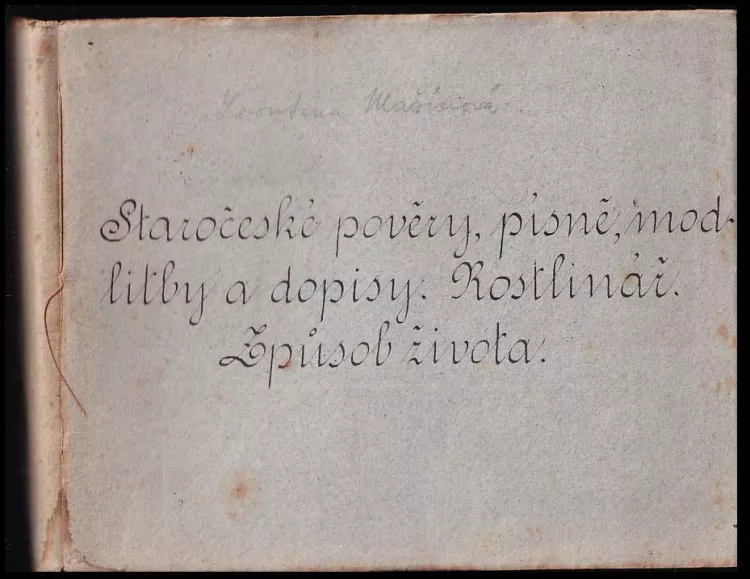 Leontina Mašínová.
Staročeské pověry, písně, mod-
litby a dopisy. Rostlinář.
Způsob života.